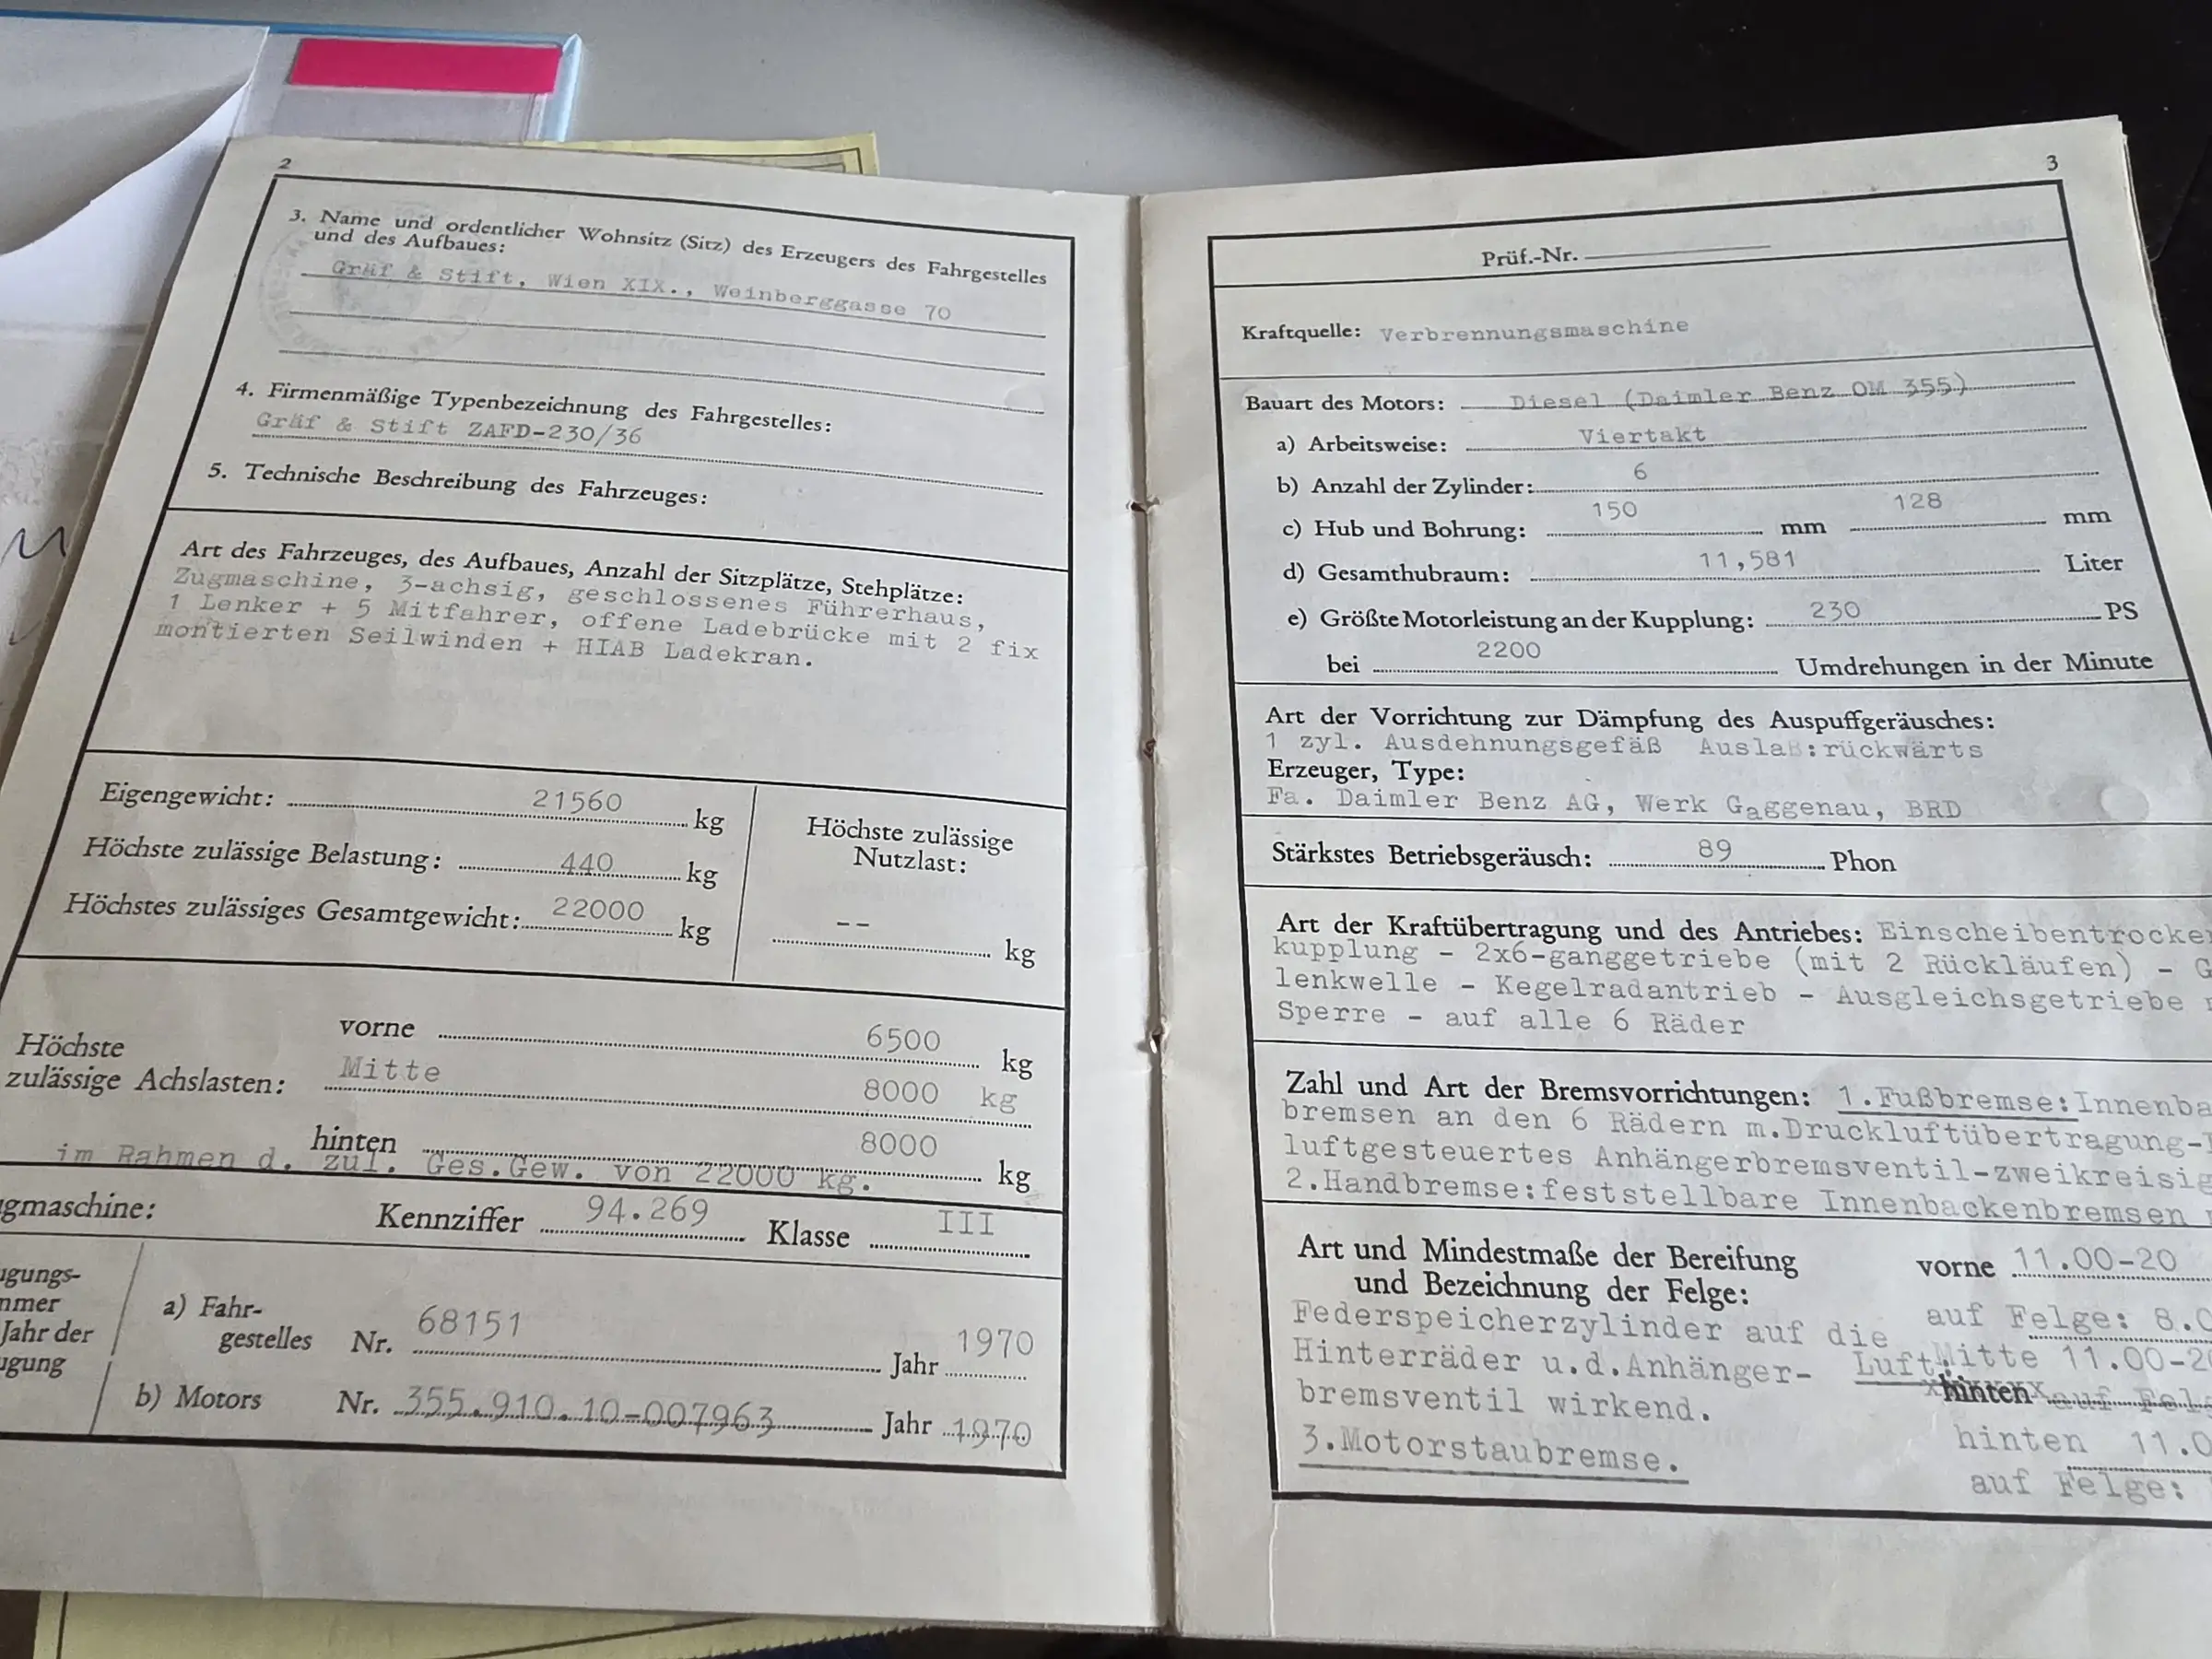 2
3. Name und ordentlicher Wohnsitz (Sitz) des Erzeugers des Fahrgestelles
und des Aufbaues:
Gräf & Stift, Wien XIX., Weinberggasse 70
4. Firmenmäßige Typenbezeichnung des Fahrgestelles:
Gräf & Stift ZAFD-230/36
5. Technische Beschreibung des Fahrzeuges:
Art des Fahrzeuges, des Aufbaues, Anzahl der Sitzplätze, Stehplätze:
Zugmaschine, 3-achsig, geschlossenes Führerhaus,
1 Lenker + 5 Mitfahrer, offene Ladebrücke mit 2 fix
montierten Seilwinden + HIAB Ladekran.
Eigengewicht: 21560 kg
Höchste zulässige Belastung: 440 kg
Höchstes zulässiges Gesamtgewicht: 22000 kg
Höchste zulässige
Nutzlast:
-- kg
Höchste
zulässige Achslasten:
vorne 6500 kg
Mitte 8000 kg
hinten 8000 kg
im Rahmen d. zul. Ges.Gew. von 22000 kg.
gmaschine: Kennziffer 94.269 Klasse III
gungs-
mmer
Jahr der
gung
a) Fahr-
gestelles Nr. 68151 Jahr 1970
b) Motors Nr. 355.910.10-007963 Jahr 1970
3
Prüf.-Nr.
Kraftquelle: Verbrennungsmaschine
Bauart des Motors: Diesel (Daimler Benz OM 355)
a) Arbeitsweise: Viertakt
b) Anzahl der Zylinder: 6
c) Hub und Bohrung: 150 mm 128 mm
d) Gesamthubraum: 11,581 Liter
e) Größte Motorleistung an der Kupplung: 230 PS
bei 2200 Umdrehungen in der Minute
Art der Vorrichtung zur Dämpfung des Auspuffgeräusches:
1 zyl. Ausdehnungsgefäß Auslaß:rückwärts
Erzeuger, Type:
Fa. Daimler Benz AG, Werk Gaggenau, BRD
Stärkstes Betriebsgeräusch: 89 Phon
Art der Kraftübertragung und des Antriebes: Einscheibentrocke
kupplung - 2x6-ganggetriebe (mit 2 Rückläufen) - G
lenkwelle - Kegelradantrieb - Ausgleichsgetriebe
Sperre - auf alle 6 Räder
Zahl und Art der Bremsvorrichtungen: 1.Fußbremse:Innenba
bremsen an den 6 Rädern m.Druckluftübertragung-
luftgesteuertes Anhängerbremsventil-zweikreisig
2.Handbremse:feststellbare Innenbackenbremsen
Art und Mindestmaße der Bereifung
und Bezeichnung der Felge:
vorne 11.00-20
auf Felge: 8.0
Federspeicherzylinder auf die
Hinterräder u.d.Anhänger- Luft
bremsventil wirkend.
3.Motorstaubremse.
Mitte 11.00-20
hinten auf Fel
hinten 11.0
auf Felge: